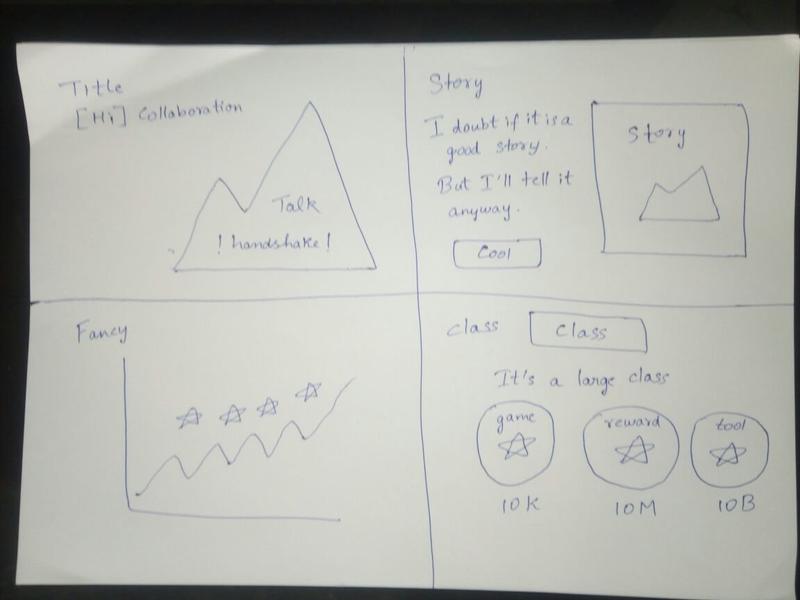 Title
[Hi] Collaboration
Talk
! handshake !
Story
I doubt if it is a
good story.
But I'll tell it
anyway.
Cool
Story
Fancy
class
Class
It's a large class
game
reward
tool
10K
10M
10B